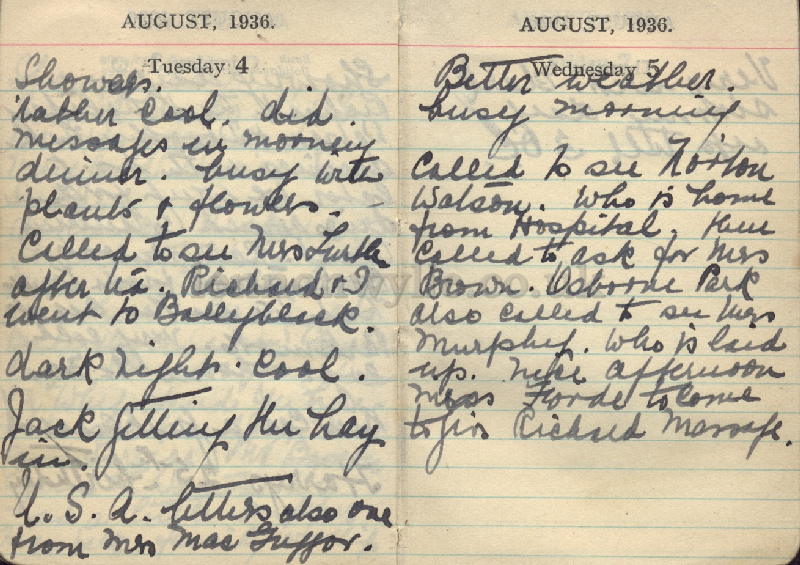 AUGUST, 1936.
Tuesday 4
Showers.
rather cool. did.
messages in morning
dinner. busy with
plants & flowers. -
Called to see Mrs
after tea. Richard & I
went to Ballyblack.
dark night. cool.
Jack getting the hay
in.
U. S. A. letters also one
from Mrs Mac Guffor.
AUGUST, 1936.
Wednesday 5
Better weather.
busy morning
Called to see Norton
Watson. Who is home
from Hospital. then
Called to ask for Mrs
Brown. Osborne Park
also called to see Mrs
Murphy. Who is laid
up. nice afternoon
Miss Forde to come
to give Richard Massage.